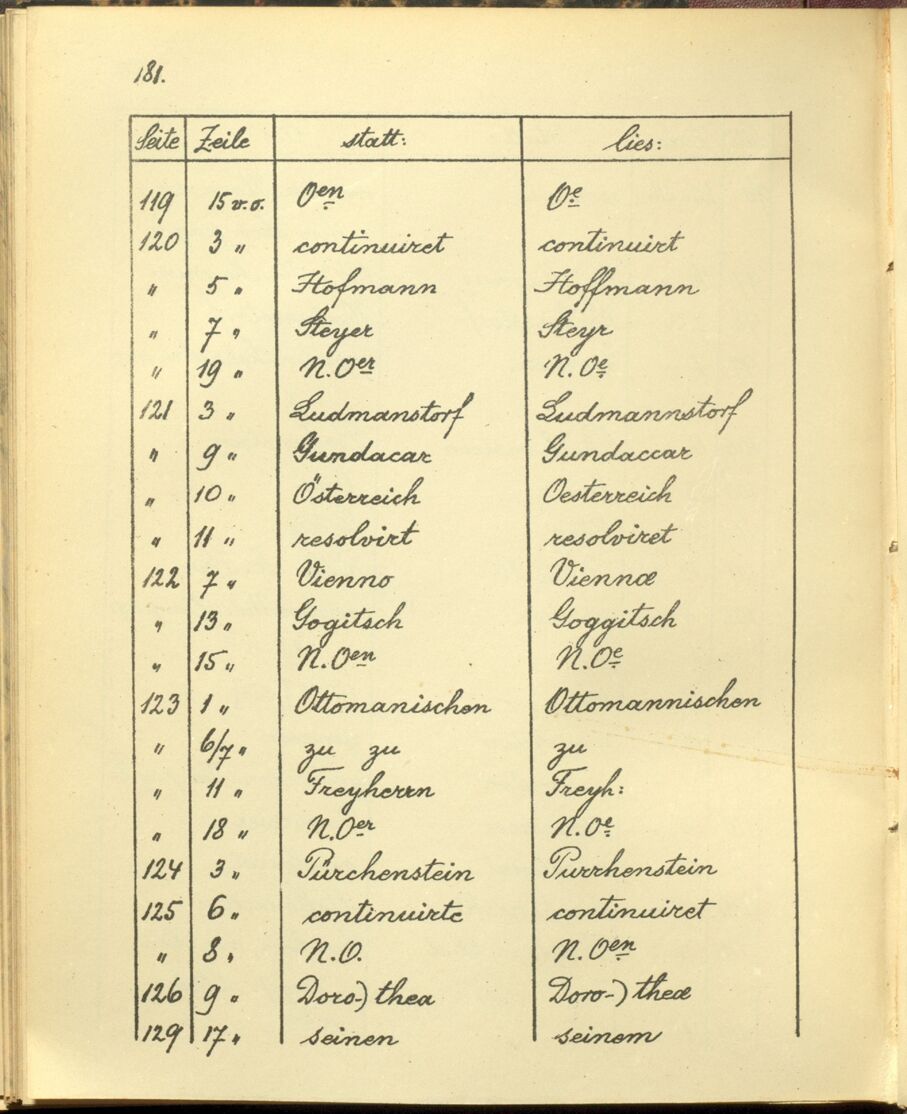 181.
Seite Zeile statt: lies:
119 15 v.o. Oen Oe
120 3 " continuiret continuirt
" 5 " Hofmann Hoffmann
" 7 " Steyer Steyr
" 19 " N.Oer N.Oe
121 3 " Ludmanstorf Ludmannstorf
" 9 " Gundacar Gundaccar
" 10 " Österreich Oesterreich
" 11 " resolvirt resolviret
122 7 " Vienno Viennæ
" 13 " Gogitsch Goggitsch
" 15 " N.Oen N.Oe
123 1 " Ottomanischen Ottomannischen
" 6/7 " zu zu zu
" 11 " Freyherrn Freyh:
" 18 " N.Oer N.Oe
124 3 " Pürchenstein Purrhenstein
125 6 " continuirte continuiret
" 8 " N.O. N.Oen
126 9 " Doro-) thea Doro-) theæ
129 17 " seinen seinem